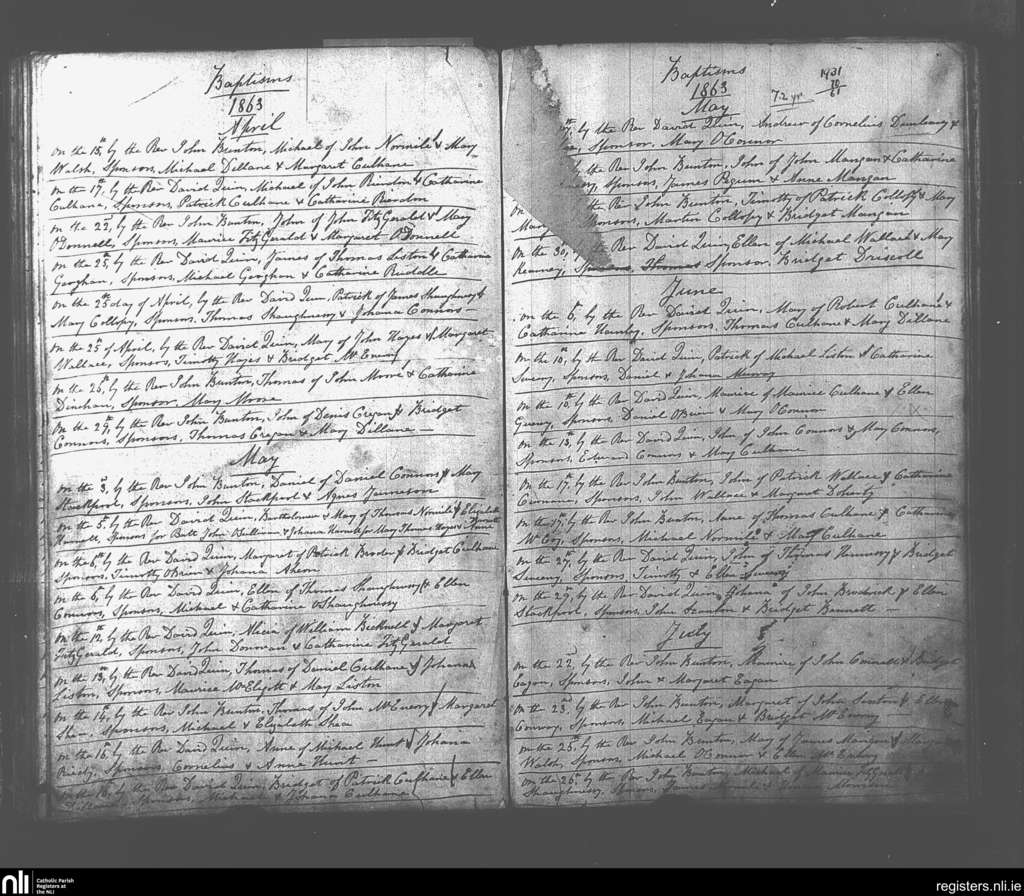 Baptisms
1863
April
On the 15th, by the Rev John Bunton, Michael of John Normile & Mary
Walsh, Sponsors, Michael Dillane & Margaret Culhane
On the 17th, by the Rev David Quin, Michael of John Riordon & Catharine
Culhane, Sponsors, Patrick Culhane & Catharine Riordon
On the 22d, by the Rev John Bunton, John of John FitzGerald & Mary
O'Donnell, Sponsors, Maurice FitzGerald & Margaret O'Donnell
On the 25th, by the Rev David Quin, James of Thomas Liston & Catharine
Geoghan, Sponsors, Michael Geoghan & Catharine Ruddle
On the 25th day of April, by the Rev David Quin, Patrick of James Shaughnessy &
Mary Collopy, Sponsors, Thomas Shaughnessy & Johana Connors
On the 25th of April, by the Rev David Quin, Mary of John Hayes & Margaret
Wallace, Sponsors, Timothy Hayes & Bridget McEniry
On the 26th, by the Rev John Bunton, Thomas of John Moore & Catharine
Dinehan, Sponsor, Mary Moore
On the 29th, by the Rev John Bunton, John of Denis Cregan & Bridget
Connors, Sponsors, Thomas Cregan & Mary Dillane
May
On the 3d, by the Rev John Bunton, Daniel of Daniel Connors & Mary
Stackpool, Sponsors, John Stackpool & Agnes Jameson
On the 5th, by the Rev David Quin, Bartholmew & Mary of Thomas Normile & Elizabeth
Sponsors for Batt John & Johana for Mary Thomas Hayes &
On the 6th, by the Rev David Quin, Margaret of Patrick Broder & Bridget Culhane
Sponsors, Timothy O'Brien & Johana Ahern
On the 6th, by the Rev David Quin, Ellen of Thomas Shaughnessy & Ellen
Connors, Sponsors, Michael & Catharine O'Shaughnessy
On the 12th, by the Rev David Quin, Alicia of William Bicknell & Margaret
FitzGerald, Sponsors, John Donovan & Catharine FitzGerald
On the 13th, by the Rev David Quin, Thomas of Daniel Culhane & Johana
Liston, Sponsors, Maurice McElgott & Mary Liston
On the 14th, by the Rev John Bunton, Thomas of John McEneroy & Margaret
Shea, Sponsors, Michael & Elizabeth Shea
On the 16th, by the Rev David Quin, Anne of Michael Hunt & Johana
Reidy, Sponsors, Cornelius & Anne Hunt
On the 16th, by the Rev David Quin, Bridget of Patrick Culhane & Ellen
Sponsors, Michael & Johana Culhane
Baptisms
1863
May
72 yr
1931
70
61
by the Rev David Quin, Andrew of Cornelius &
Sponsor, Mary O'Connor
by the Rev John Bunton, John of John Mangan & Catharine
Sponsors, James & Anne Mangan
the Rev John Bunton, Timothy of Patrick Collopy & Mary
Sponsors, Martin Collopy & Bridget Mangan
On the 30th, by the Rev David Quin, Ellen of Michael Wallace & Mary
Kearney, Sponsors, Thomas Sponsor. Bridget Driscoll
June
On the 6th, by the Rev David Quin, Mary of Robert Culhane &
Catharine Sponsors, Thomas Culhane & Mary Dillane
On the 10th, by the Rev David Quin, Patrick of Michael Liston & Catharine
Sponsors, Daniel & Johana
On the 10th, by the Rev David Quin, Maurice of Maurice Culhane & Ellen
Sponsors Daniel O'Brien & Mary O'Connor
On the 13th, by the Rev David Quin, John of John Connors & Mary Connors,
Sponsors, Edward Connors & Mary Culhane
On the 17th, by the Rev John Bunton, John of Patrick Wallace & Catharine
Sponsors, John Wallace & Margaret Doherty
On the 17th, by the Rev John Bunton, Anne of Thomas Culhane & Catharine
McCoy, Sponsors, Michael Normile & Mary Culhane
On the 27th, by the Rev David Quin, John of Thomas & Bridget
Sponsors, Timothy & Ellen
On the 29th, by the Rev David Quin, Johana of John Broderick & Ellen
Stackpool, Sponsors, John Scanlon & Bridget
July
On the 22d, by the Rev John Bunton, Maurice of John Connell & Bridget
Eagan, Sponsors, John & Margaret Eagan
On the 23d, by the Rev John Bunton, Margaret of John & Ellen
Conroy, Sponsors, Michael Eagan & Bridget McEniry
On the 25th, by the Rev John Bunton, Mary of James Mangan &
Walsh, Sponsors, Michael O'Connor & Ellen
On the 26th, by the Rev John Bunton, Michael of Maurice FitzGerald &
Shaughnessy, Sponsors, James
nli
Catholic Parish
Registers at
the NLI
registers.nli.ie